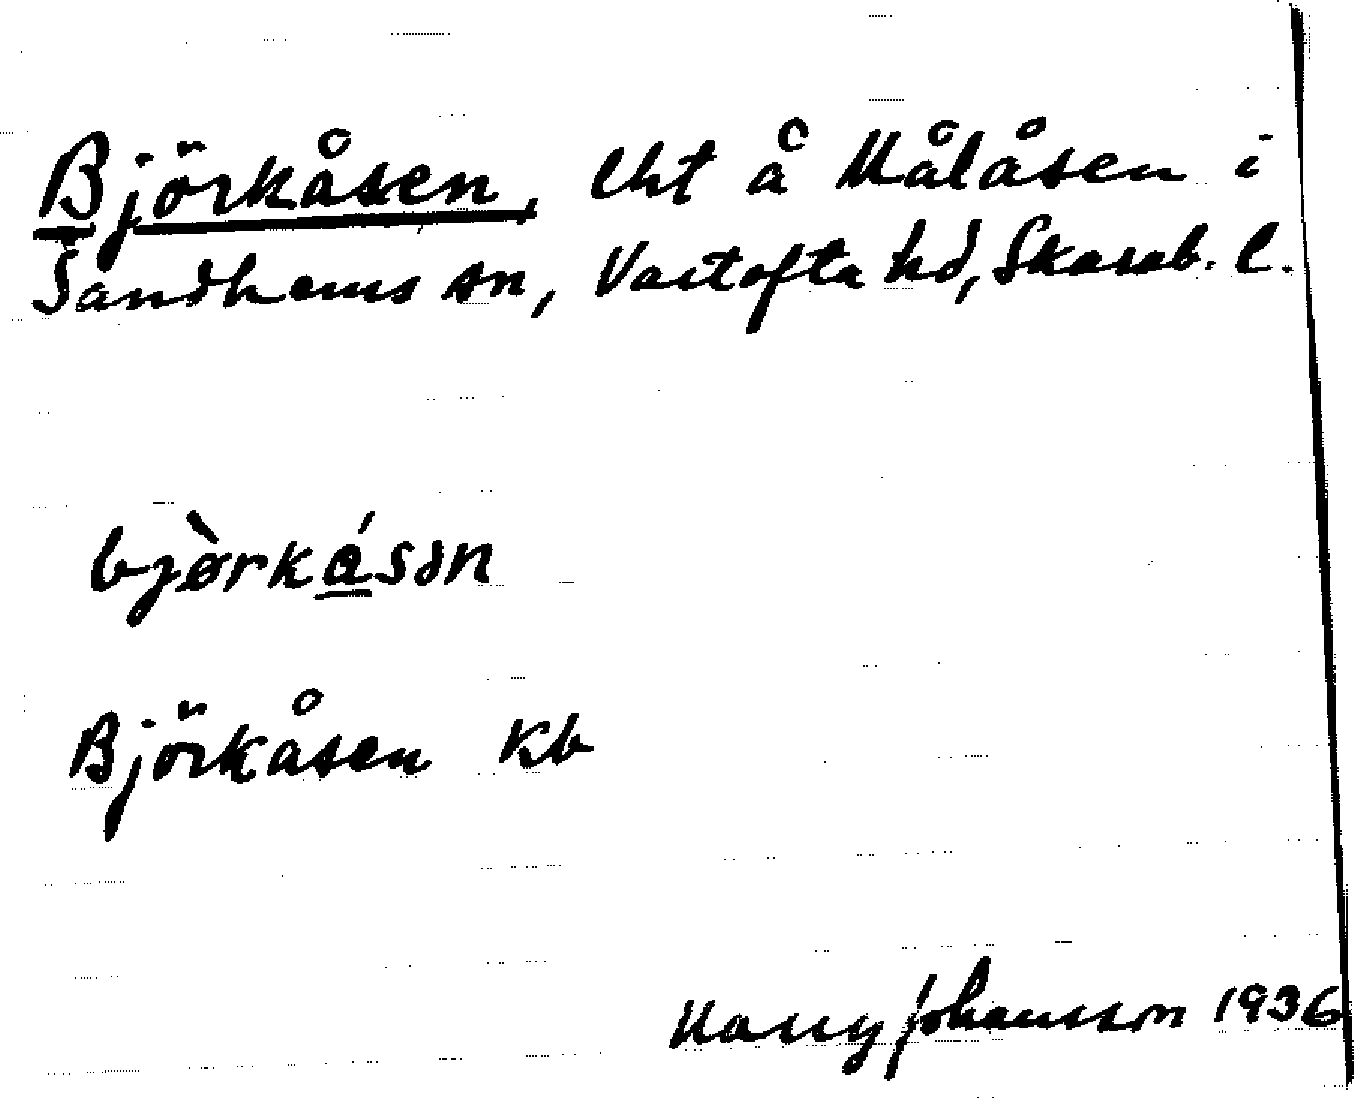 Björkåsen, lht å Målåsen i
Sandhems sn, Vartofta hd, Skarab. l.
bjørkåsən
Björkåsen kb
Harry Johansson 1936